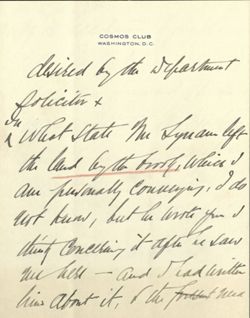 COSMOS CLUB
WASHINGTON, D.C.
desired by the Department
Solicitor &
In
What state Mr Lynam left
the land by the book, which I
am personally conveying, I do
not know, but he wrote you I
think concerning it after he saw
me here — and I had written
him about it, & the